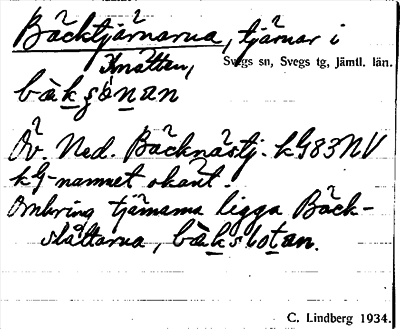 Bäcktjärnarna, tjärnar i
Knätten, Svegs sn, Svegs tg, Jämtl. län.
bäkʂønan
Öv. Ned. Bäcknästj. kG83NV
kG-namnet okänt.
Omkring tjärnarna ligga Bäck-
slåttarna, bäkslotan.
C. Lindberg 1934.